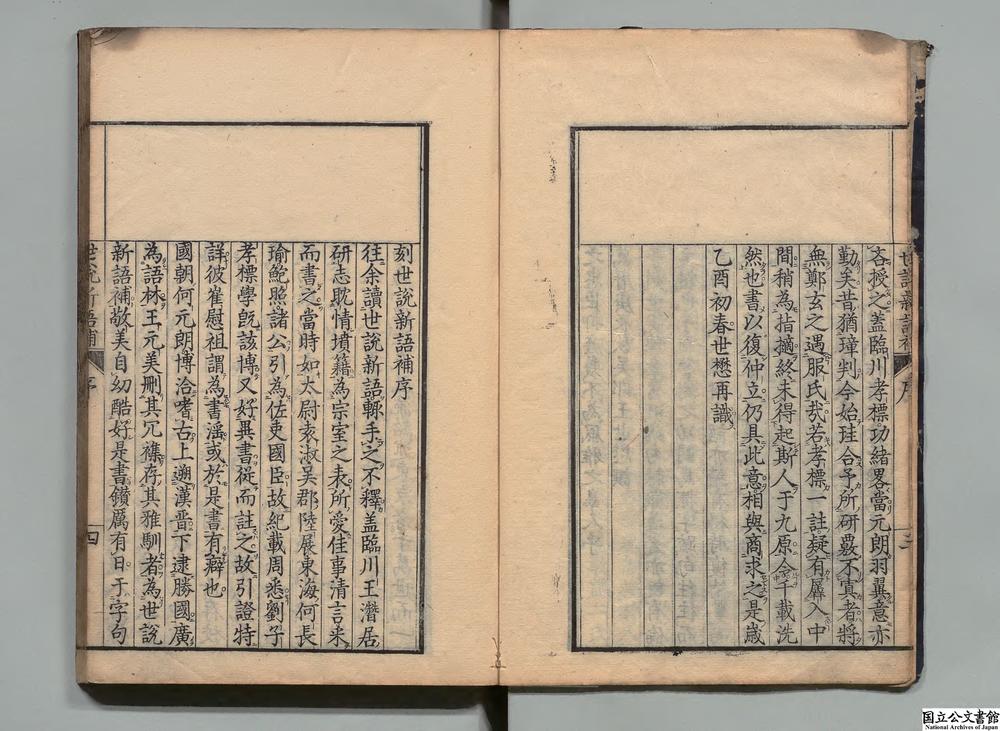 吝授之蓋臨川孝標功緒畧當元朗羽翼意亦
勤矣昔猶璋判今始珪合予所研覈不寘者將
無鄭玄之遇服氏㢤若孝標一註疑有羼入中
間稍為指擿終未得起斯人于九原令千載洗
然也書以復仲立仍具此意相與商求之是歲
乙酉初春世懋再識
刻世說新語補序
往余讀世說新語輙手之不釋盖臨川王潛居
研志耽情墳籍為宗室之表所愛佳事清言来
而書之當時如太尉袁淑吴郡陸展東海何長
瑜鮑照諸公引為佐吏國臣故紀載周悉劉子
孝標學旣該博又好異書從而註之故引證特
詳彼崔慰祖謂為書滛或於是書有癖也
國朝何元朗博洽嗜古上遡漢晉下逮勝國廣
為語林王元美刪其冗襍存其雅馴者為世說
新語補敬美自幼酷好是書鑽厲有日于字句
世說新語補
序
四
國立公文書館
National Archives of Japan